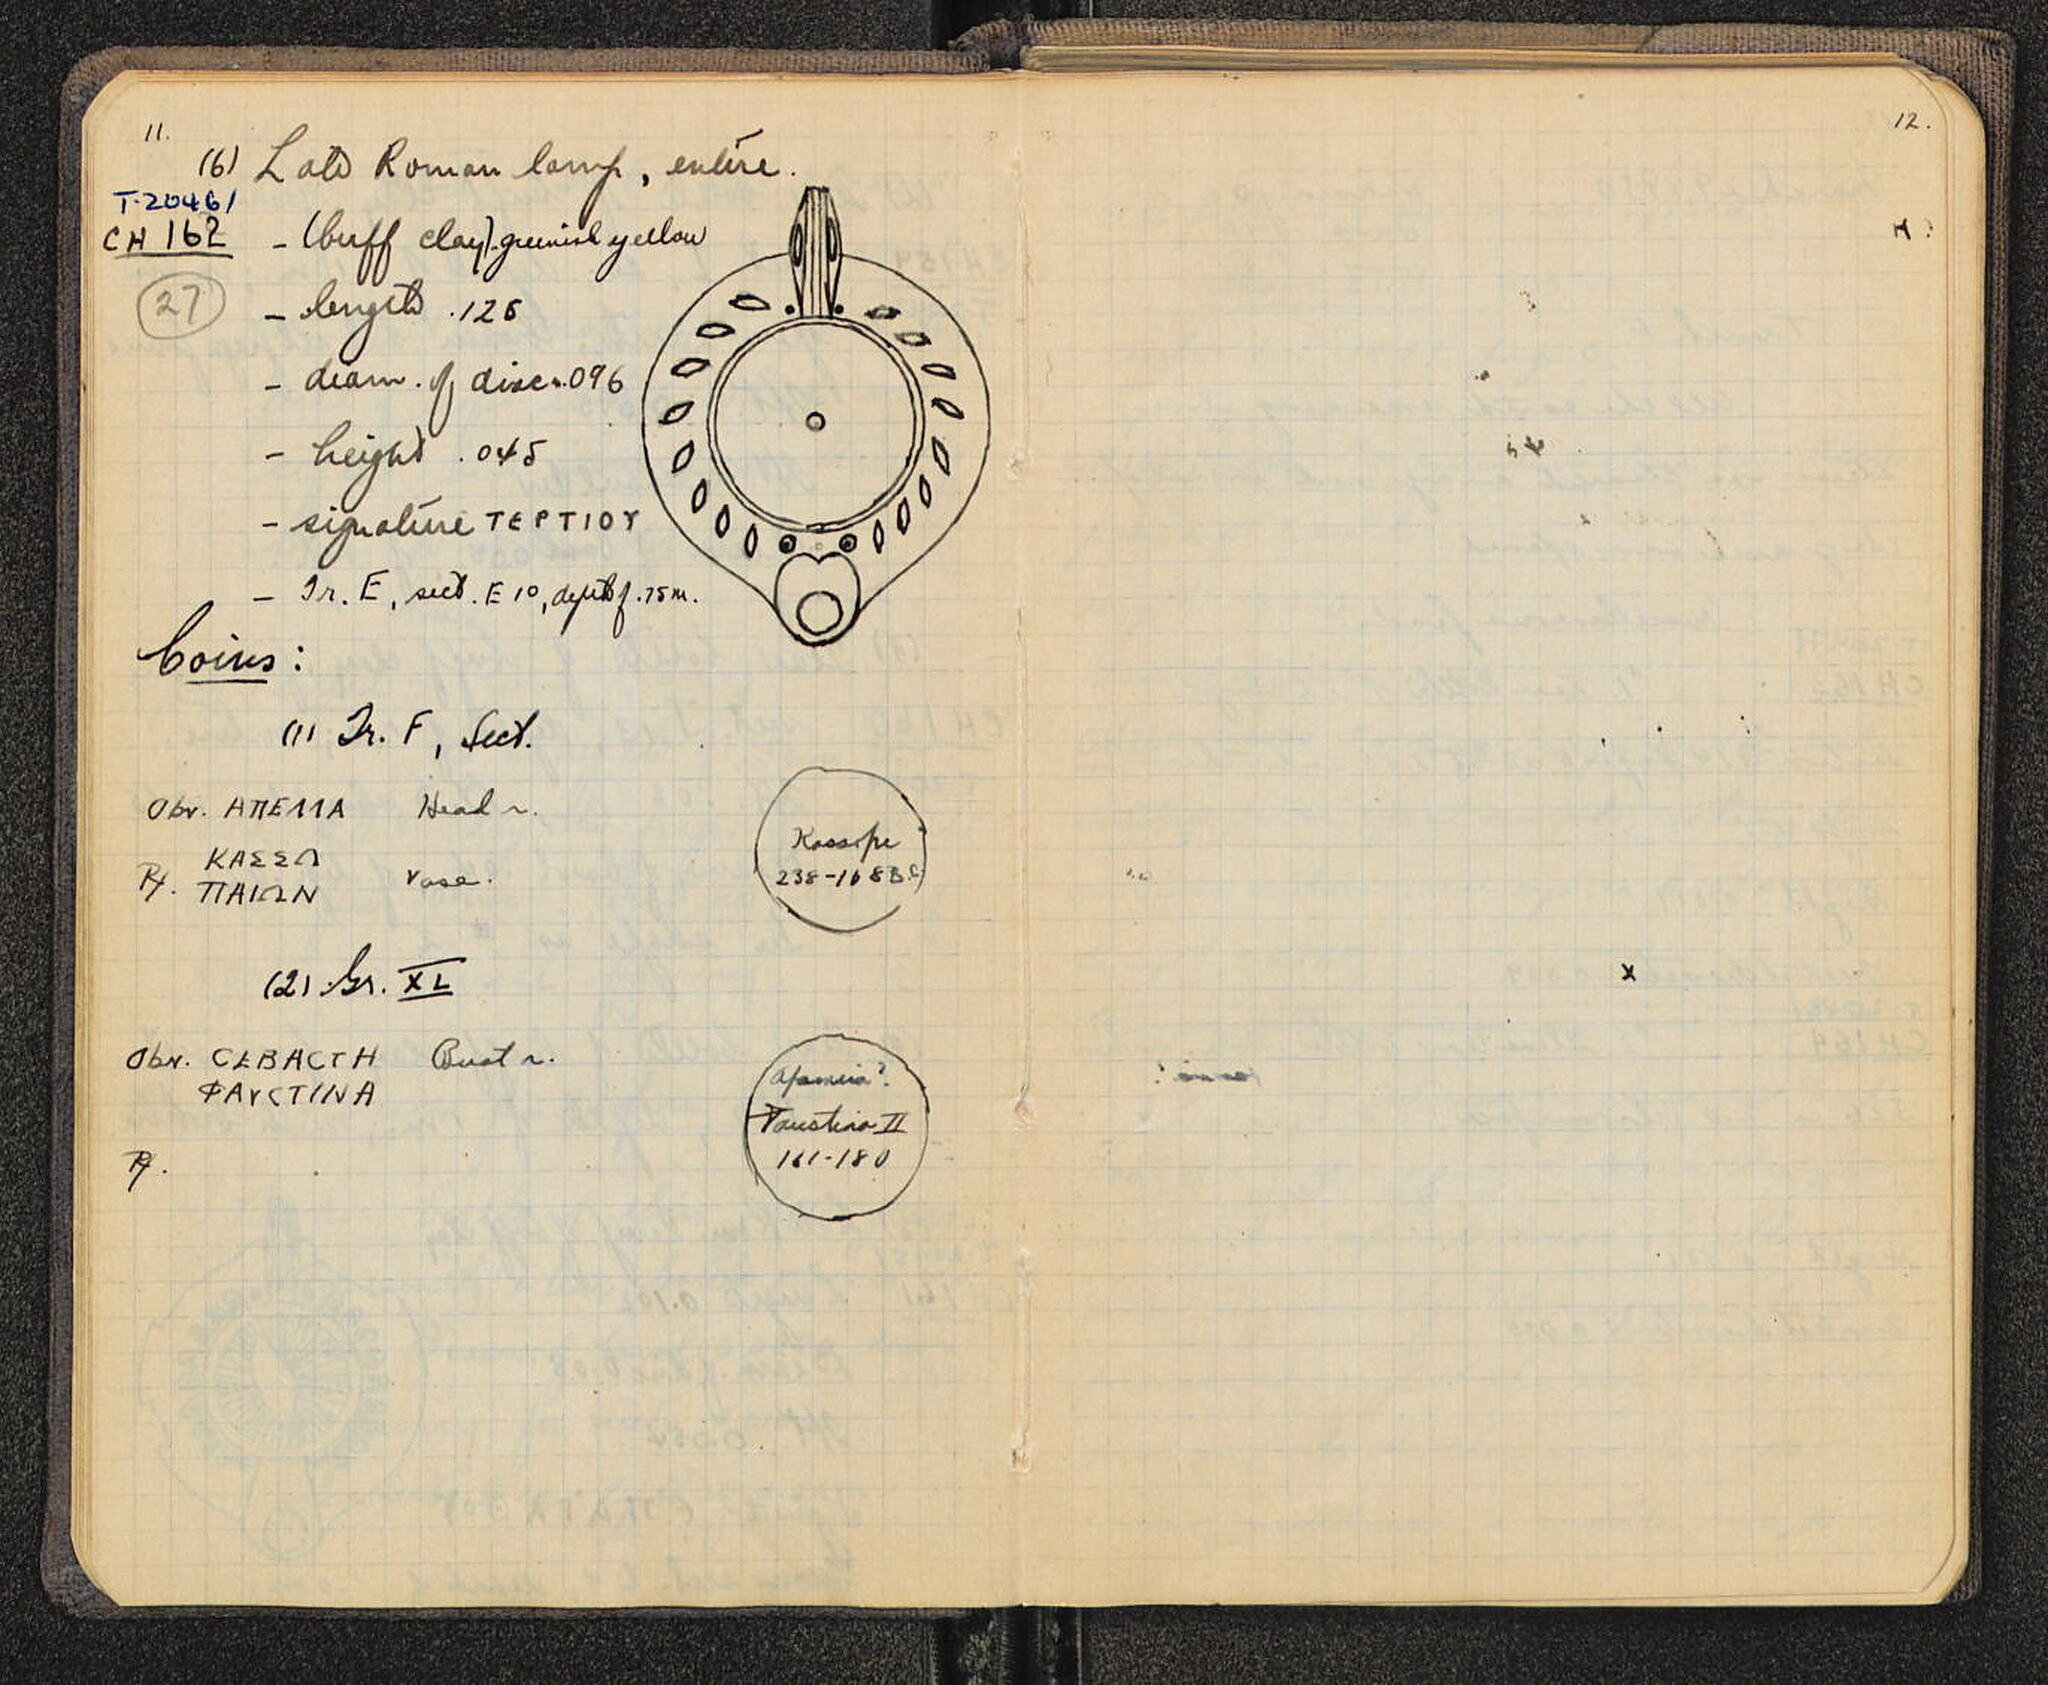 11.
(6) Late Roman lamp, entire.
T-20461
CH 162
- (buff clay) greenish yellow
27
- length .125
- diam. of disc .096
- height .045
- signature ΤΕΡΤΙΟΥ
- Tr. E, sect. E 10, depth of .75 m.
Coins:
(1) Tr. F, Sect.
Obv. ΑΠΕΛΛΑ Head r.
ΚΑΣΣΩ
R. ΠΑΙΩΝ Vase.
Kassope
238-168 B.C.
(2) Gr. XL
Obv. CΕΒΑCΤΗ Bust r.
ΦΑΥCΤΙΝΑ
R.
Apameia?
Faustina II
161-180
12.
x